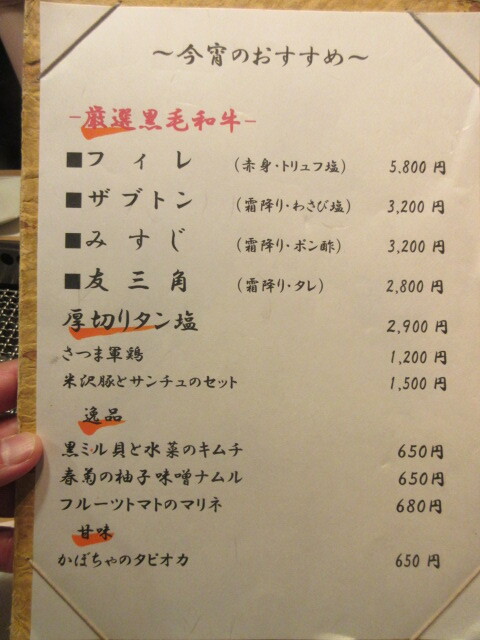 ～今宵のおすすめ～
-厳選黒毛和牛-
■フィレ (赤身・トリュフ塩) 5,800円
■ザブトン (霜降り・わさび塩) 3,200円
■みすじ (霜降り・ポン酢) 3,200円
■友三角 (霜降り・タレ) 2,800円
厚切りタン塩 2,900円
さつま軍鶏 1,200円
米沢豚とサンチュのセット 1,500円
逸品
黒ミル貝と水菜のキムチ 650円
春菊の柚子味噌ナムル 650円
フルーツトマトのマリネ 680円
甘味
かぼちゃのタピオカ 650円